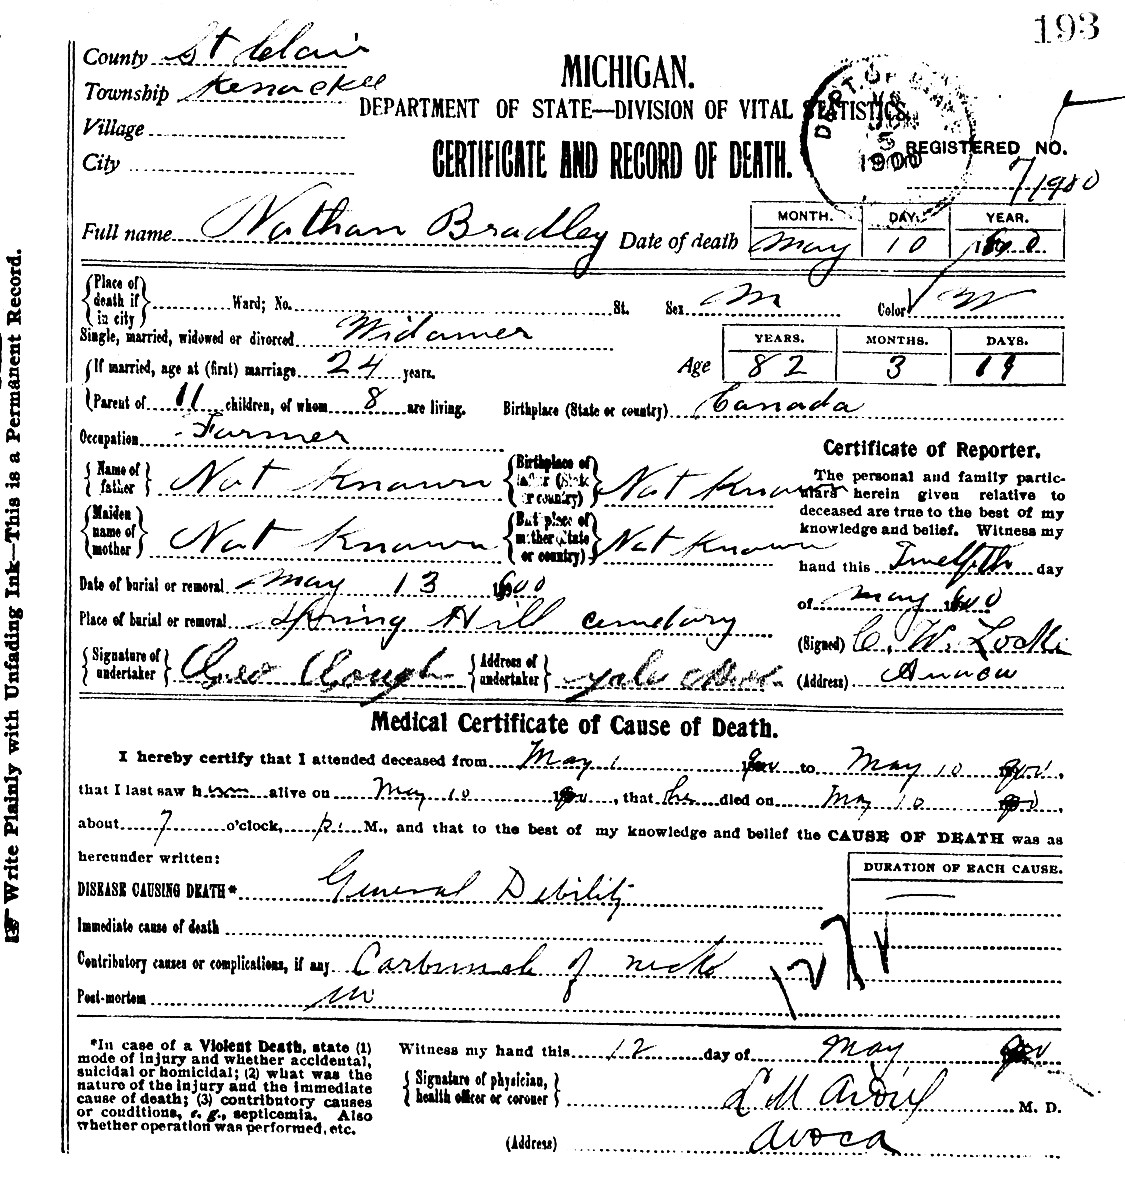 193
County St Clair
Township Kenockee
MICHIGAN.
DEPARTMENT OF STATE—DIVISION OF VITAL STATISTICS.
Village
City
CERTIFICATE AND RECORD OF DEATH.
DEPT. OF
5
1900
REGISTERED NO.
7/1900
Full name Nathan Bradley Date of death
MONTH. DAY. YEAR.
May 10 1900
Place of death if in city Ward; No. St. Sex M Color W
Single, married, widowed or divorced Widower
If married, age at (first) marriage 24 years.
Age YEARS. MONTHS. DAYS.
82 3 19
Parent of 11 children, of whom 8 are living. Birthplace (State or country) Canada
Occupation Farmer
Name of father Not Known Birthplace of father (State or country) Not Known
Maiden name of mother Not Known Birthplace of mother (State or country) Not Known
Date of burial or removal May 13 1900
Place of burial or removal Spring Hill cemetary
Signature of undertaker Geo Clough Address of undertaker Yale Mich.
Certificate of Reporter.
The personal and family partic-
ulars herein given relative to
deceased are true to the best of my
knowledge and belief. Witness my
hand this Twelfth day
of May 1900
(Signed) C. W. 
(Address)
Medical Certificate of Cause of Death.
I hereby certify that I attended deceased from May 1 1900 to May 10 1900,
that I last saw him alive on May 10 1900, that he died on May 10 1900,
about 7 o'clock, p. M., and that to the best of my knowledge and belief the CAUSE OF DEATH was as
hereunder written:
DURATION OF EACH CAUSE.
DISEASE CAUSING DEATH* General Debility
Immediate cause of death
Contributory causes or complications, if any Carbuncle of neck
Post-mortem
*In case of a Violent Death, state (1)
mode of injury and whether accidental,
suicidal or homicidal; (2) what was the
nature of the injury and the immediate
cause of death; (3) contributory causes
or conditions, e. g., septicemia. Also
whether operation was performed, etc.
Witness my hand this 12 day of May 1900
Signature of physician, health officer or coroner M. D.
(Address) Avoca
Write Plainly with Unfading Ink—This is a Permanent Record.